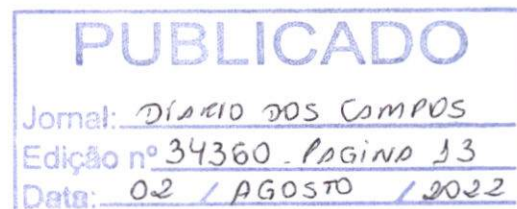 PUBLICADO
Jornal: DIARIO DOS CAMPOS
Edição nº 34360 - PAGINA 13
Data: 02 / AGOSTO / 2022